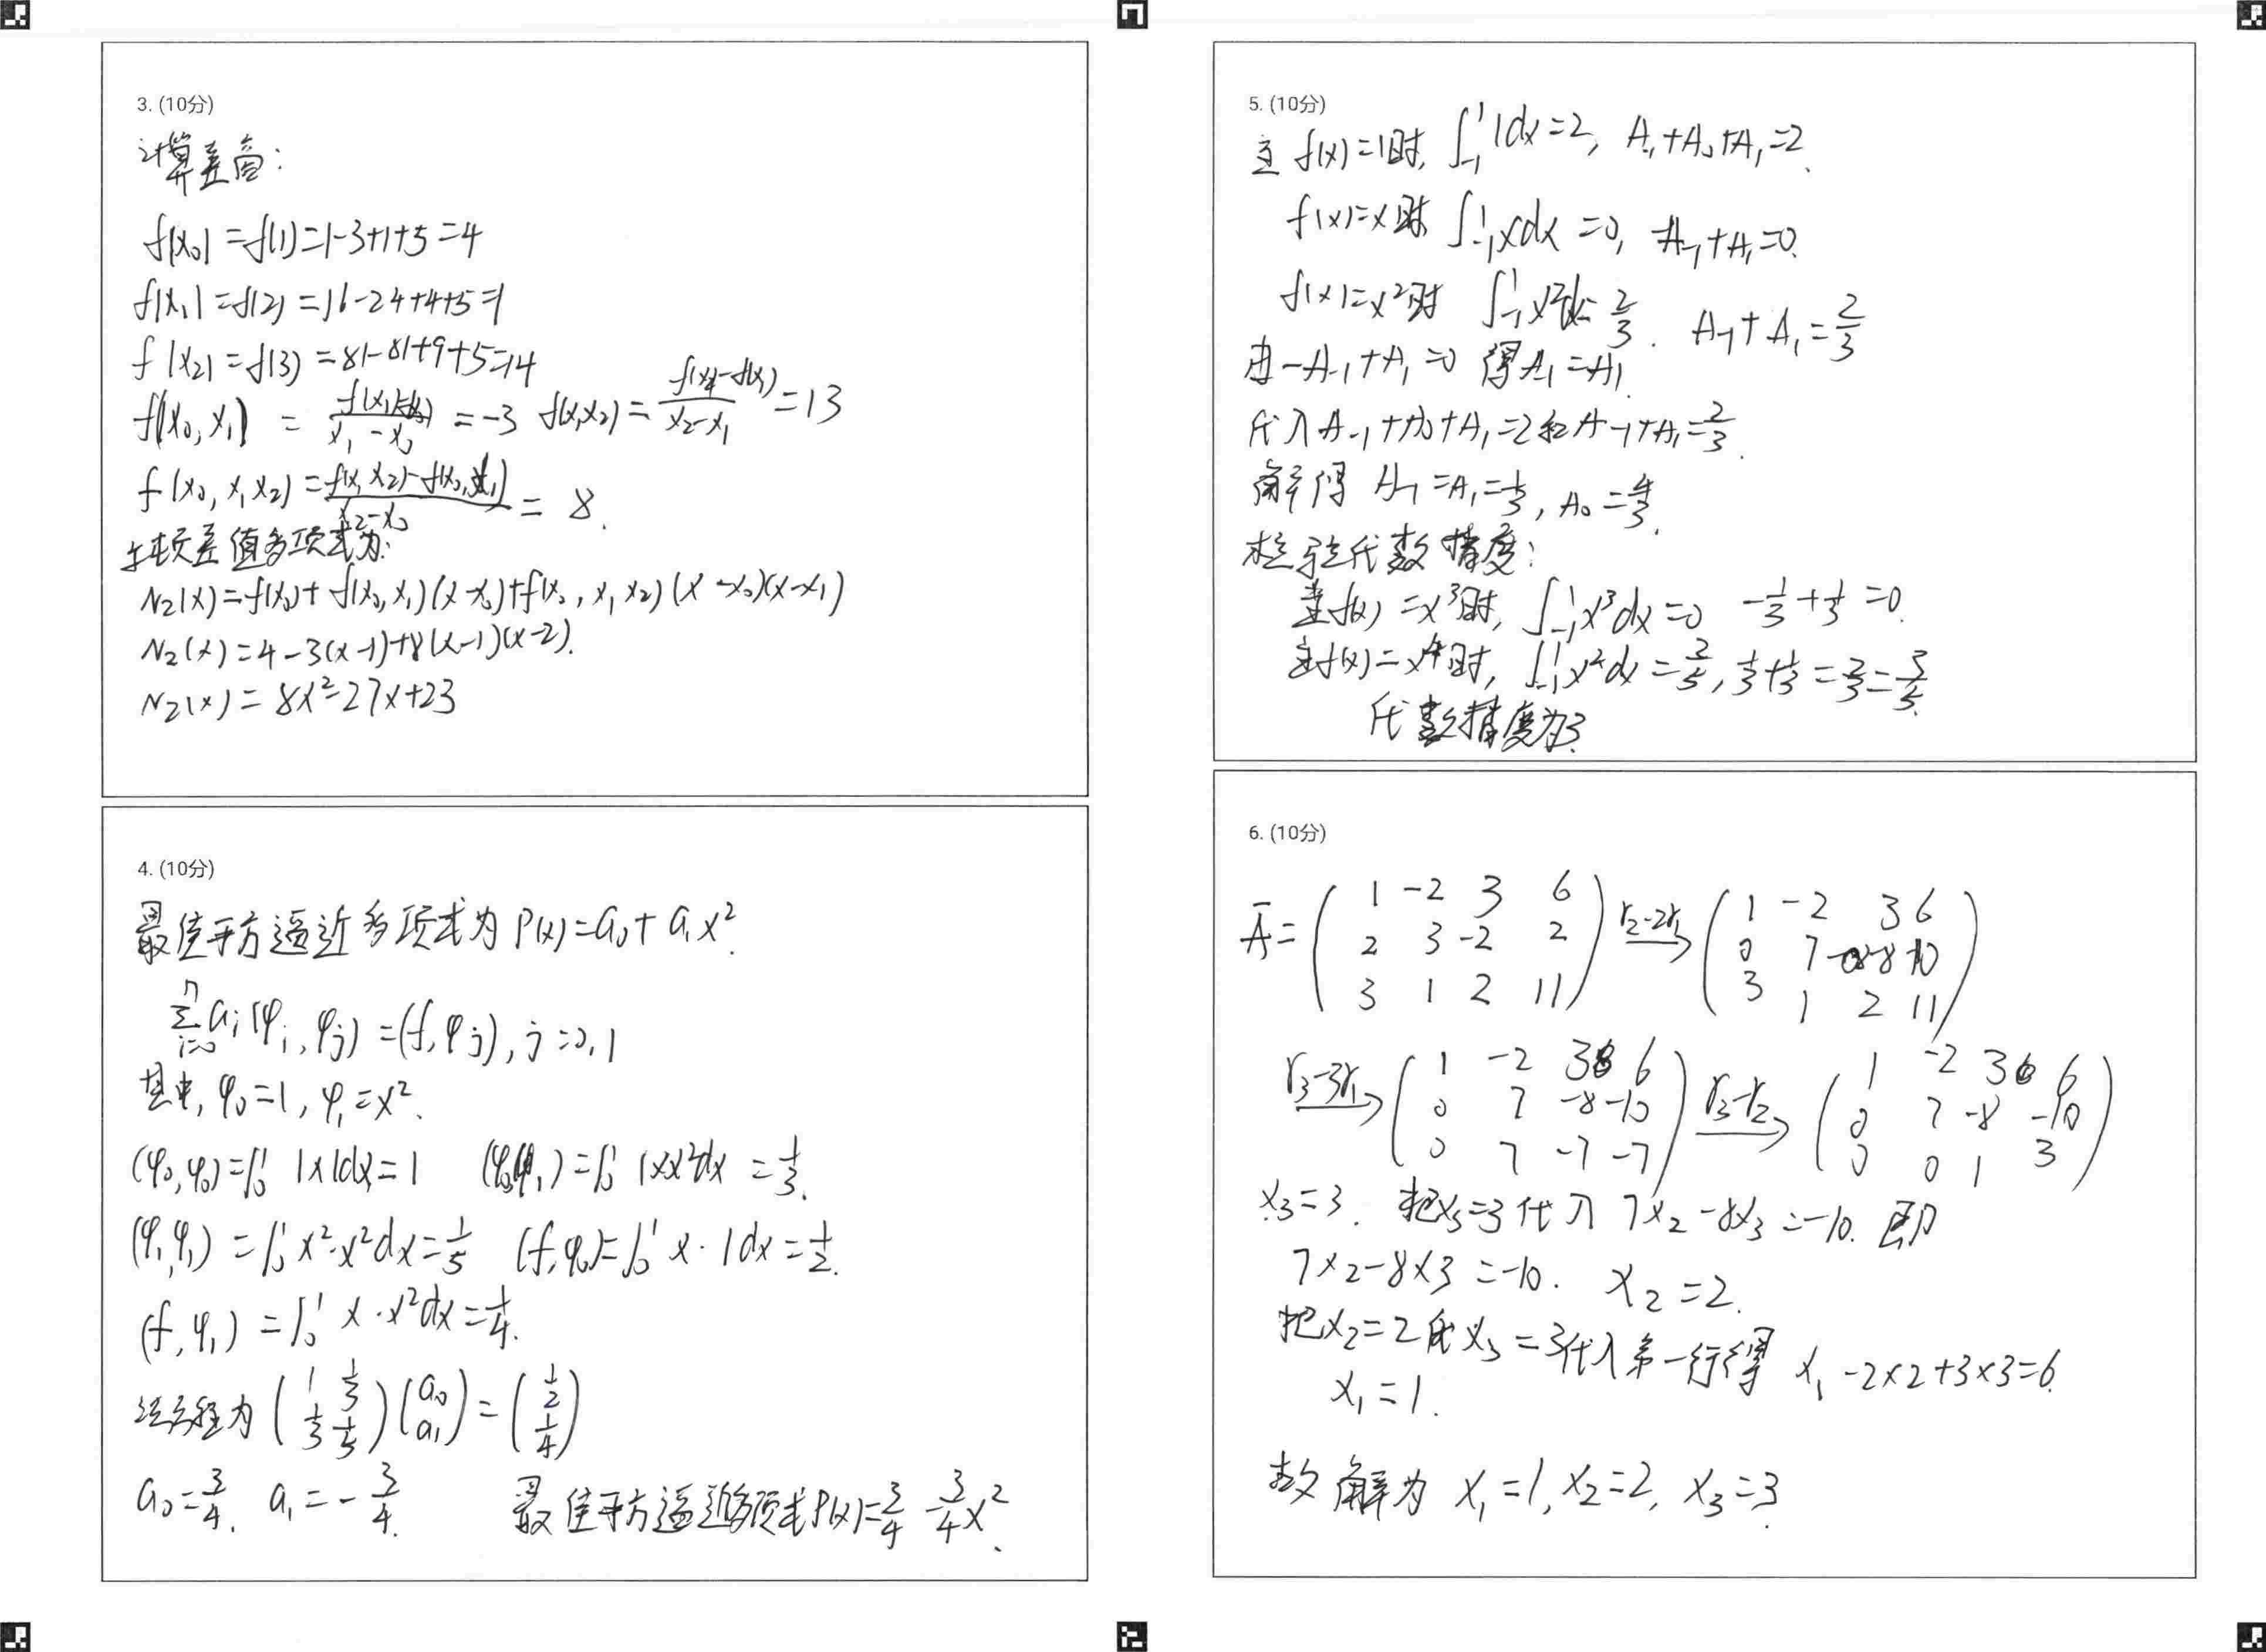 3. (10分)
计算差商:
f(x₀) = f(1) = 1-3+1+5 = 4
f(x₁) = f(2) = 16-24+4+5 = 1
f(x₂) = f(3) = 81-81+9+5 = 14
f(x₀, x₁) = (f(x₁)-f(x₀))/(x₁-x₀) = -3 f(x₁x₂) = (f(x₂)-f(x₁))/(x₂-x₁) = 13
f(x₀, x₁x₂) = (f(x₁x₂)-f(x₀,x₁))/(x₂-x₀) = 8.
牛顿差值多项式为:
N₂(x) = f(x₀) + f(x₀, x₁)(x-x₀) + f(x₀, x₁ x₂)(x-x₀)(x-x₁)
N₂(x) = 4-3(x-1)+8(x-1)(x-2).
N₂(x) = 8x²-27x+23
4. (10分)
最佳平方逼近多项式为 P(x) = a₀ + a₁x².
Σⁿᵢ₌₀ aᵢ(φᵢ, φⱼ) = (f, φⱼ), j = 0, 1
其中, φ₀ = 1, φ₁ = x².
(φ₀, φ₀) = ∫₀¹ 1×1dx = 1 (φ₀φ₁) = ∫₀¹ 1×x²dx = 1/3.
(φ₁, φ₁) = ∫₀¹ x²·x²dx = 1/5 (f, φ₀) = ∫₀¹ x·1dx = 1/2.
(f, φ₁) = ∫₀¹ x·x²dx = 1/4.
法方程为 (1 1/3; 1/3 1/5)(a₀; a₁) = (1/2; 1/4)
a₀ = 3/4. a₁ = -3/4. 最佳平方逼近多项式P(x) = 3/4 - 3/4x².
5. (10分)
当 f(x) = 1时, ∫₋₁¹ 1dx = 2, A₋₁+A₀+A₁ = 2.
f(x) = x时 ∫₋₁¹ xdx = 0, -A₋₁+A₁ = 0.
f(x) = x²时 ∫₋₁¹ x²dx = 2/3. A₋₁+A₁ = 2/3
由 -A₋₁+A₁ = 0 得 A₋₁ = A₁.
代入 A₋₁+A₀+A₁ = 2 和 A₋₁+A₁ = 2/3.
解得 A₋₁ = A₁ = 1/3, A₀ = 4/3.
检验代数精度:
当f(x) = x³时, ∫₋₁¹ x³dx = 0 -1/3+1/3 = 0.
当f(x) = x⁴时, ∫₋₁¹ x²dx = 2/5, 1/3+1/3 = 2/3 = 3/5.
代数精度为3.
6. (10分)
Ā = (1 -2 3 6; 2 3 -2 2; 3 1 2 11) r₂-2r₁→ (1 -2 3 6; 0 7 -8 -10; 3 1 2 11)
r₃-3r₁→ (1 -2 3 6; 0 7 -8 -10; 0 7 -7 -7) r₃-r₂→ (1 -2 3 6; 0 7 -8 -10; 0 0 1 3)
x₃ = 3. 把x₃ = 3代入 7x₂-8x₃ = -10. 即
7x₂-8×3 = -10. x₂ = 2.
把x₂ = 2 和 x₃ = 3代入第一行得 x₁-2×2+3×3 = 6.
x₁ = 1.
故解为 x₁ = 1, x₂ = 2, x₃ = 3.